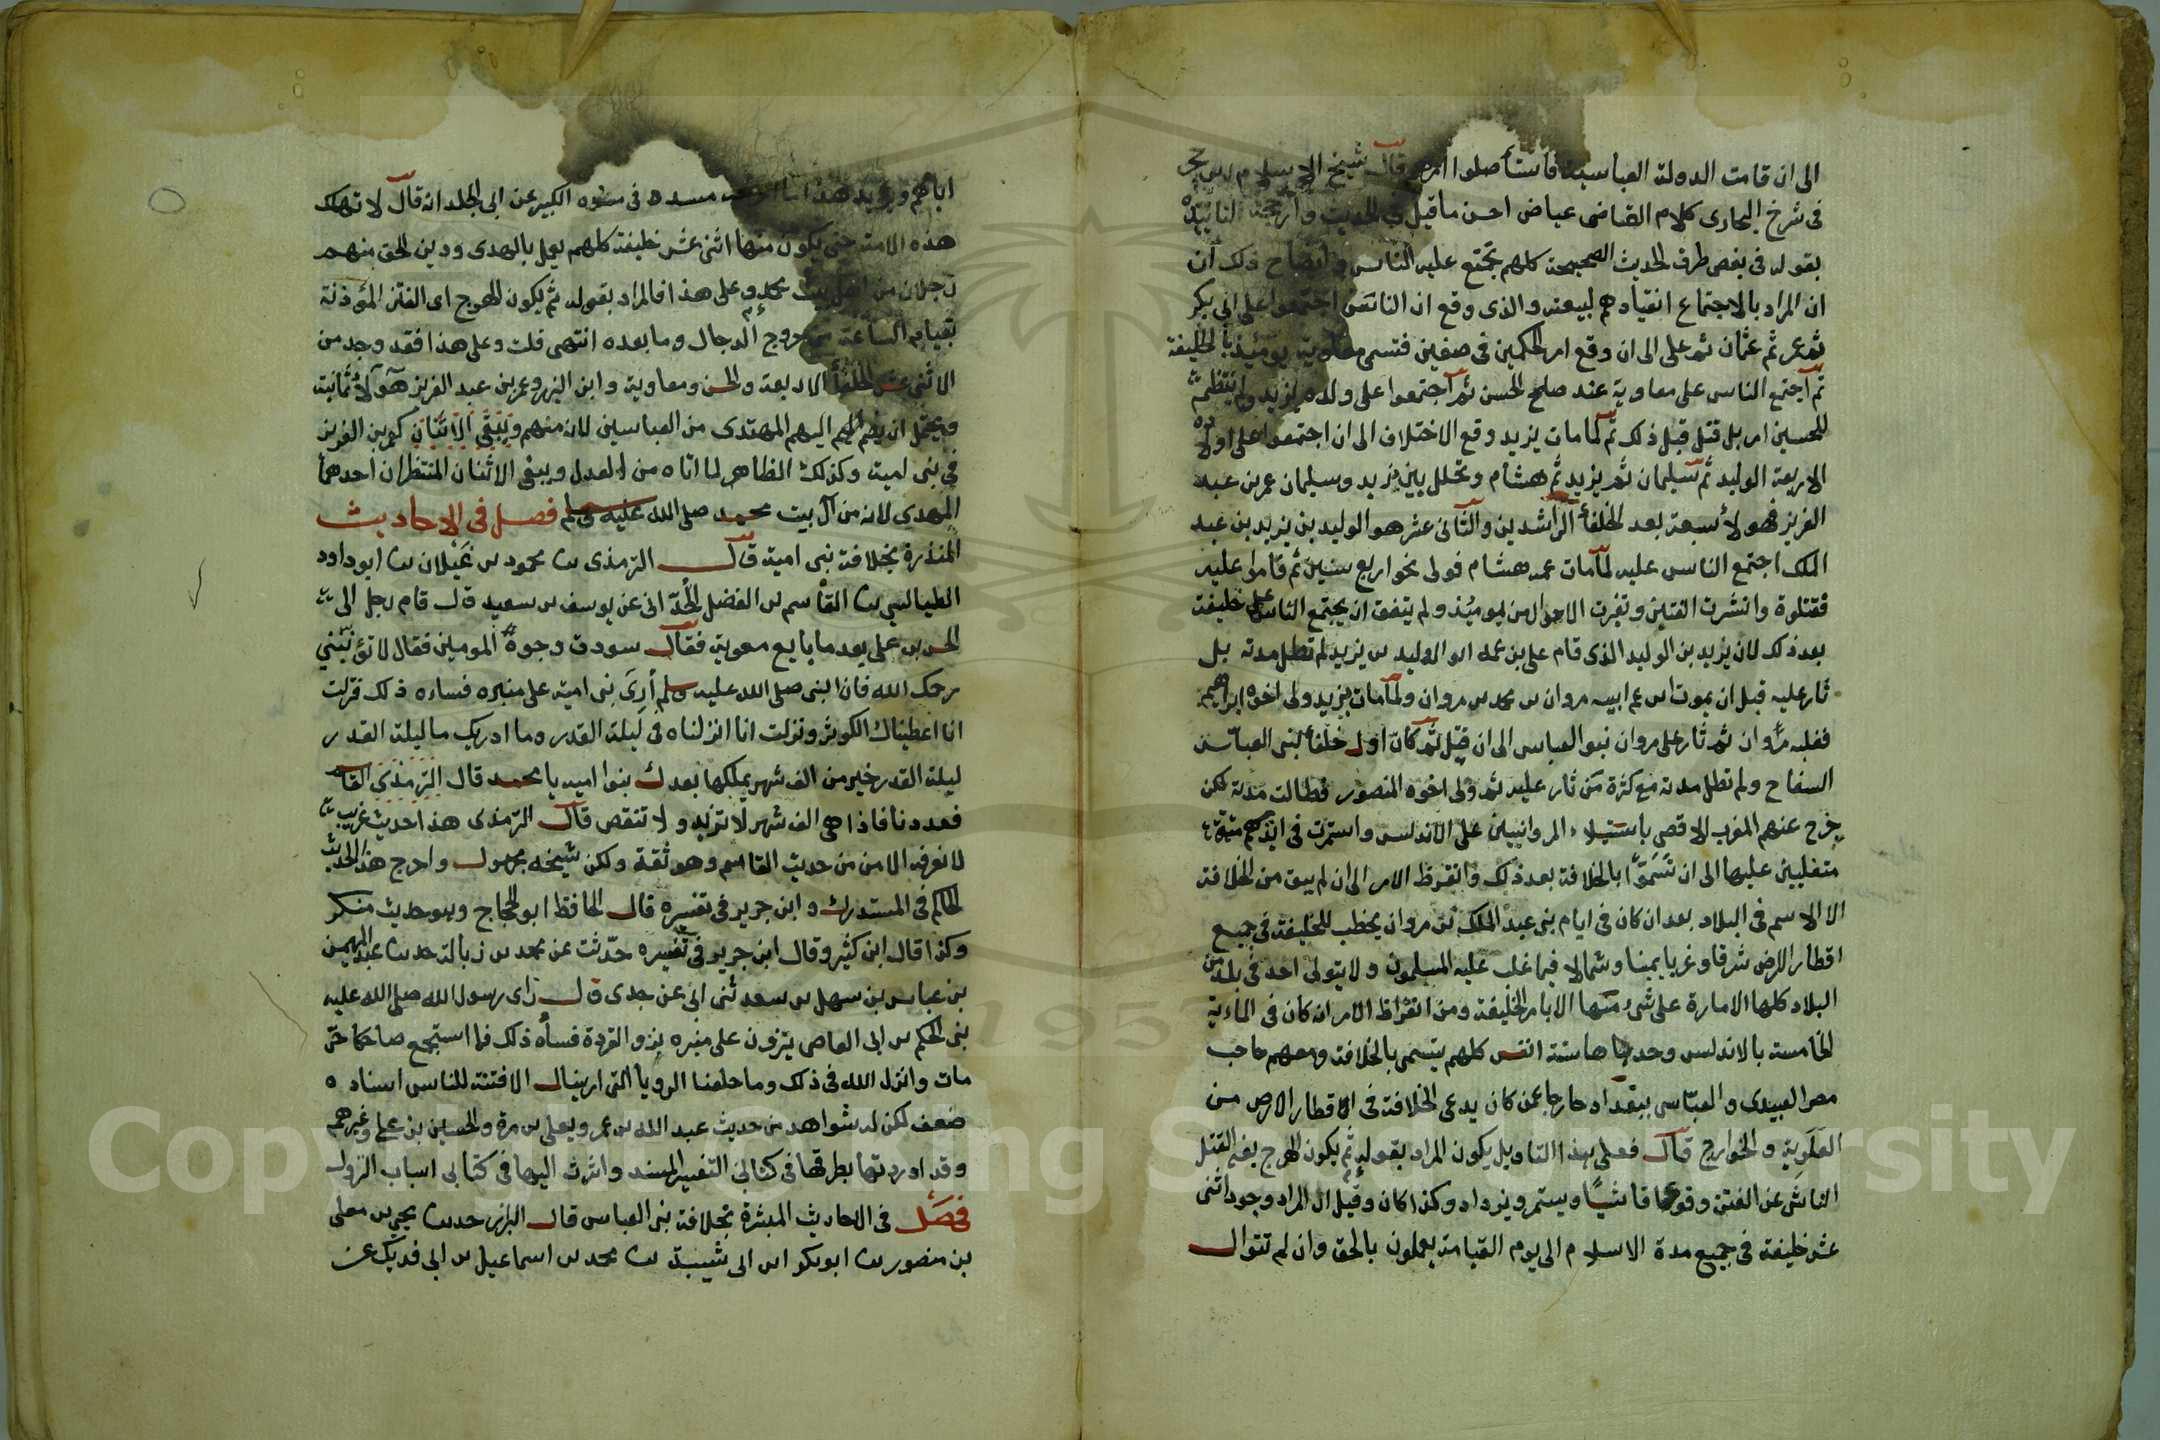 الى ان قامت الدولة العباسية فاستأصلوا امرهم قال شيخ الاسلام ابن حجر
فى شرح البخارى كلام القاضى عياض احسن ما قيل فى الحديث وارجحه لتاييده
بقوله فى بعض طرف الحديث الصحيحة كلهم تجتمع عليه الناس وايضاح ذلك ان
ان المراد بالاجتماع انقيادهم لبيعته والذى وقع ان الناس اجتمعوا على ابى بكر
ثم عمر ثم عثمان ثم على الى ان وقع امر الحكمين فى صفين فتسمى معاوية يومئذ بالخليفة
ثم اجتمع الناس على معاوية عند صلح الحسن ثم اجتمعوا على ولده يزيد ولم ينتظم
للحسين امر بل قتل قبل ذلك ثم لما مات يزيد وقع الاختلاف الى ان اجتمعوا على اولاده
الاربعة الوليد ثم سليمان ثم يزيد ثم هشام وتخلل بين يزيد وسليمان عمر بن عبد
العزيز فهولا سبعة بعد الخلفا الراشدين والثانى عشر هو الوليد بن يزيد بن عبد
الملك اجتمع الناس عليه لما مات عمه هشام فولى نحو اربع سنين ثم قاموا عليه
فقتلوة وانتشرت الفتن وتغيرت الاحوال من يوميئذ ولم يتفق ان يجتمع الناس على خليفة
بعد ذلك لان يزيد بن الوليد الذى قام على بن عمه ابو الوليد بن يزيد لم تطل مدته بل
ثار عليه قبل ان يموت ابن عم ابيه مروان بن محمد بن مروان ولما مات يزيد ولى اخوه ابراهيم
فغلبه مروان ثم ثار على مروان بنو العباس الى ان قتل ثم كان اول خلفا بنى العباس
السفاح ولم تطل مدته مع كثرة من ثار عليه ثم ولى اخوه المنصور فطالت مدته لكن
خرج عنهم المغرب الاقصى باستيلاء المروانيين على الاندلس واستمرت فى ايديهم
متغلبين عليها الى ان تسموا بالخلافة بعد ذلك وانقرظ الامر الى ان لم يبق من الخلافة
الا الاسم فى البلاد بعد ان كان فى ايام بنى عبد الملك بن مروان يخطب للخليفة فى جميع
اقطار الارض شرقا وغربا يمينا وشمالا فيما غلب عليه المسلمون ولا يتولى احد فى بلد من
البلاد كلها الامارة على شى منها الا بامر الخليفة ومن انقراظ الامر انه كان فى الماءية
الخامسة بالاندلس وحدها ستة انفس كلهم يتسمى بالخلافة ومعهم صاحب
مصر العبيدى والعباسى ببغداد خارجا عمن كان يدعى الخلافة فى اقطار الارض من
العلوية والخوارج قال فعلى هذا التاويل يكون المراد بقوله ثم يكون الهرج يعنى القتل
الناشى عن الفتن وقوعا فاشيا ويستمر ويزداد وكذا كان وقيل ان المراد وجود اثنى
عشر خليفة فى جميع مدة الاسلام الى يوم القيامة يعملون بالحق وان لم تتوال
ايامهم ويويد هذا ما اخرجه مسدد فى مسنده الكبير عن ابى الجلد انه قال لا تهلك
هذه الامة حتى يكون منها اثنى عشر خليفة كلهم يعمل بالهدى ودين الحق منهم
رجلان من اهل بيت محمد وعلى هذا فالمراد بقوله ثم يكون الهرج اى الفتن المؤذنة
بقيام الساعة من خروج الدجال وما بعده انتهى قلت وعلى هذا فقد وجد من
الاثنى عشر الخلفا الاربعة والحسن ومعاوية وابن الزبير وعمر بن عبد العزيز هولا ثمانية
ويحتمل ان يضم اليهم المهتدى من العباسيين لانه منهم كعمر بن العزيز
فى بنى امية وكذلك الظاهر لما اتاه من العدل ويبقى الاثنان المنتظران احدهما
المهدى لانه من آل بيت محمد صلى الله عليه وسلم فصل فى الاحاديث
المنذرة بخلافة بنى امية قال الترمذى ثنا محمود بن غيلان ثنا ابو داود
الطيالسى ثنا القاسم بن الفضل الحدانى عن يوسف بن سعيد قال قام رجل الى
الحسن بن على بعد ما بايع معوية فقال سودت وجوه المومنين فقال لا تؤنبنى
رحمك الله فان النبى صلى الله عليه وسلم أرى بنى امية على منبره فساءه ذلك فنزلت
انا اعطيناك الكوثر ونزلت انا انزلناه فى ليلة القدر وما ادريك ما ليلة القدر
ليلة القدر خير من الف شهر يملكها بعدك بنوا امية يا محمد قال القاسم
فعددنا فاذا هى الف شهر لا تزيد ولا تنقص قال الترمذى هذا حديث غريب
لا نعرفه الا من من حديث القاسم وهو ثقة ولكن شيخه مجهول واخرج هذا الحديث
الحاكم فى المستدرك وابن جرير فى تفسيره قال الحافظ ابو الحجاج وهو حديث منكر
وكذا قال ابن كثير وقال ابن جرير فى تفسيره حدثت عن محمد بن زبالة حدثنا عبد المهيمن
بن عباس بن سهل بن سعد ثنى ابى عن جدى قال راى رسول الله صلى الله عليه
بنى الحكم بن ابى العاص ينزون على منبره نزو القردة فساه ذلك فما استجمع ضاحكا حتى
مات وانزل الله فى ذلك وما جعلنا الرويا التى اريناك الا فتنة للناس اسناده
ضعف لكن له شواهد من حديث عبد الله بن عمر ويعلى بن مرة والحسين بن على وغيرهم
وقد اوردتها بطرقها فى كتابى التفسير المسند واشرت اليها فى كتابى اسباب النزول
فصل فى الاحاديث المبشرة بخلافة بنى العباس قال البزار حدثنا يحيى بن معلى
بن منصور ثنا ابو بكر ابن ابى شيبة ثنا محمد بن اسماعيل بن ابى فديك عن
Copyright © King Saud University
1957